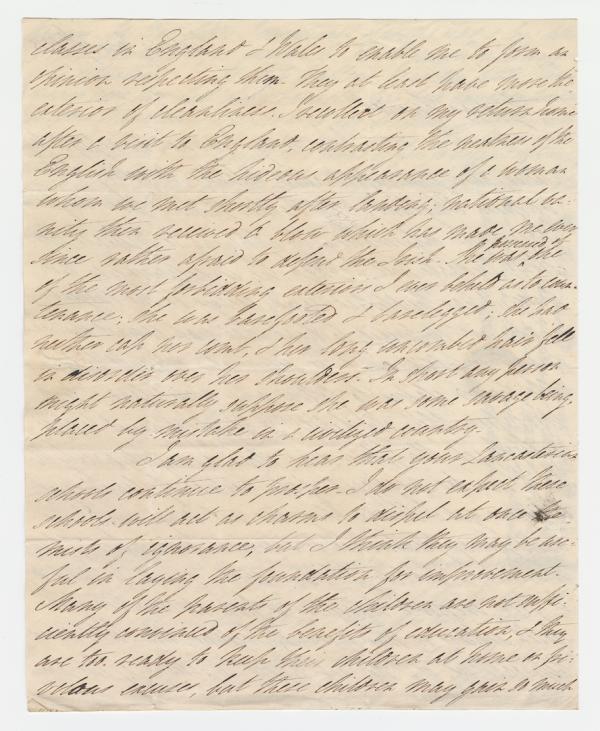 classes in England & Wales to enable me to form an
opinion respecting them. They at least have more the
exterior of cleanliness. I recollect on my return home
after a visit to England, contrasting the neatness of the
English with the hideous appearance of a woman
whom we met shortly after landing; national va-
nity then received a blow which has made me ever
since rather afraid to defend the Irish. She was possessed of
of the most forbidding exterior I ever beheld as to coun-
tenance; she was barefooted & barelegged; she had
neither cap nor bonnet, & her long uncombed hair fell
in disorder over her shoulders. In short any person
might naturally suppose she was some savage being,
placed by mistake in a civilized country.
I am glad to hear that your Lancasterian
schools continue to prosper. I do not expect these
schools will act as charms to dispel at once the
mists of ignorance, but I think they may be use-
ful in laying the foundation for improvement.
Many of the parents of the children are not suffi-
ciently convinced of the benefits of education, & they
are too ready to keep their children at home on fri-
volous excuses, but these children may gain so much